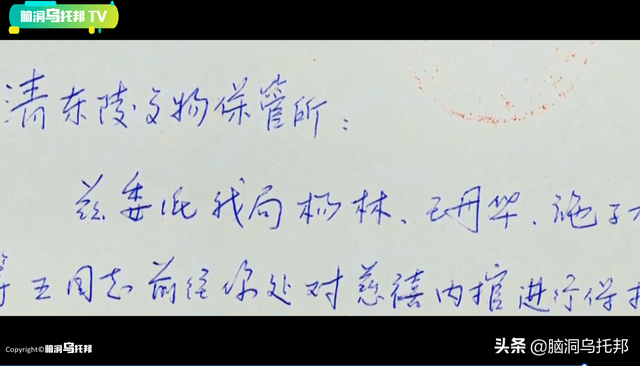 脑洞乌托邦 TV
清东陵文物保管所：
兹委托我局杨林、王丹华、
等五同志前往你处对慈禧内棺进行保护
Copyright©脑洞乌托邦
头条 @脑洞乌托邦